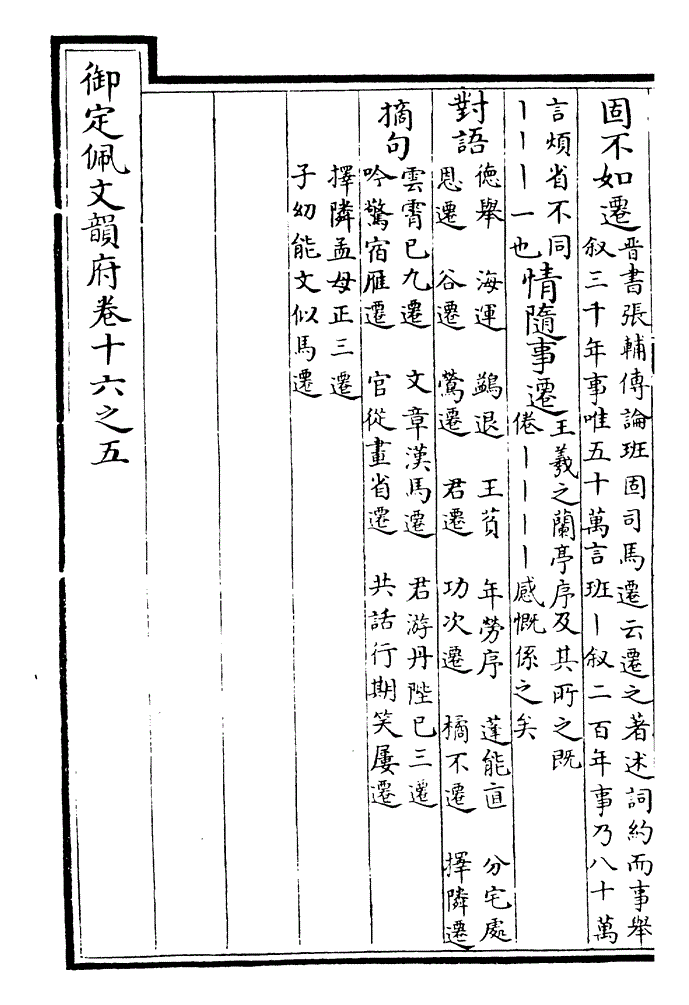 固不如遷晉書張輔傳論班固司馬遷云遷之著述詞約而事舉
叙三千年事唯五十萬言班丨叙二百年事乃八十萬
言煩省不同
丨丨丨一也情隨事遷王羲之蘭亭序及其所之既
倦丨丨丨丨感慨係之矣
對語
德舉 海運 鷁退 王貢 年勞序 蓬能直 分宅處
恩遷 谷遷 鶯遷 君遷 功次遷 橘不遷 擇隣遷
摘句
雲霄已九遷 文章漢馬遷 君游丹陛已三遷
吟驚宿雁遷 官從畫省遷 共話行期笑屢遷
擇隣孟母正三遷
子幼能文似馬遷
御定佩文韻府卷十六之五